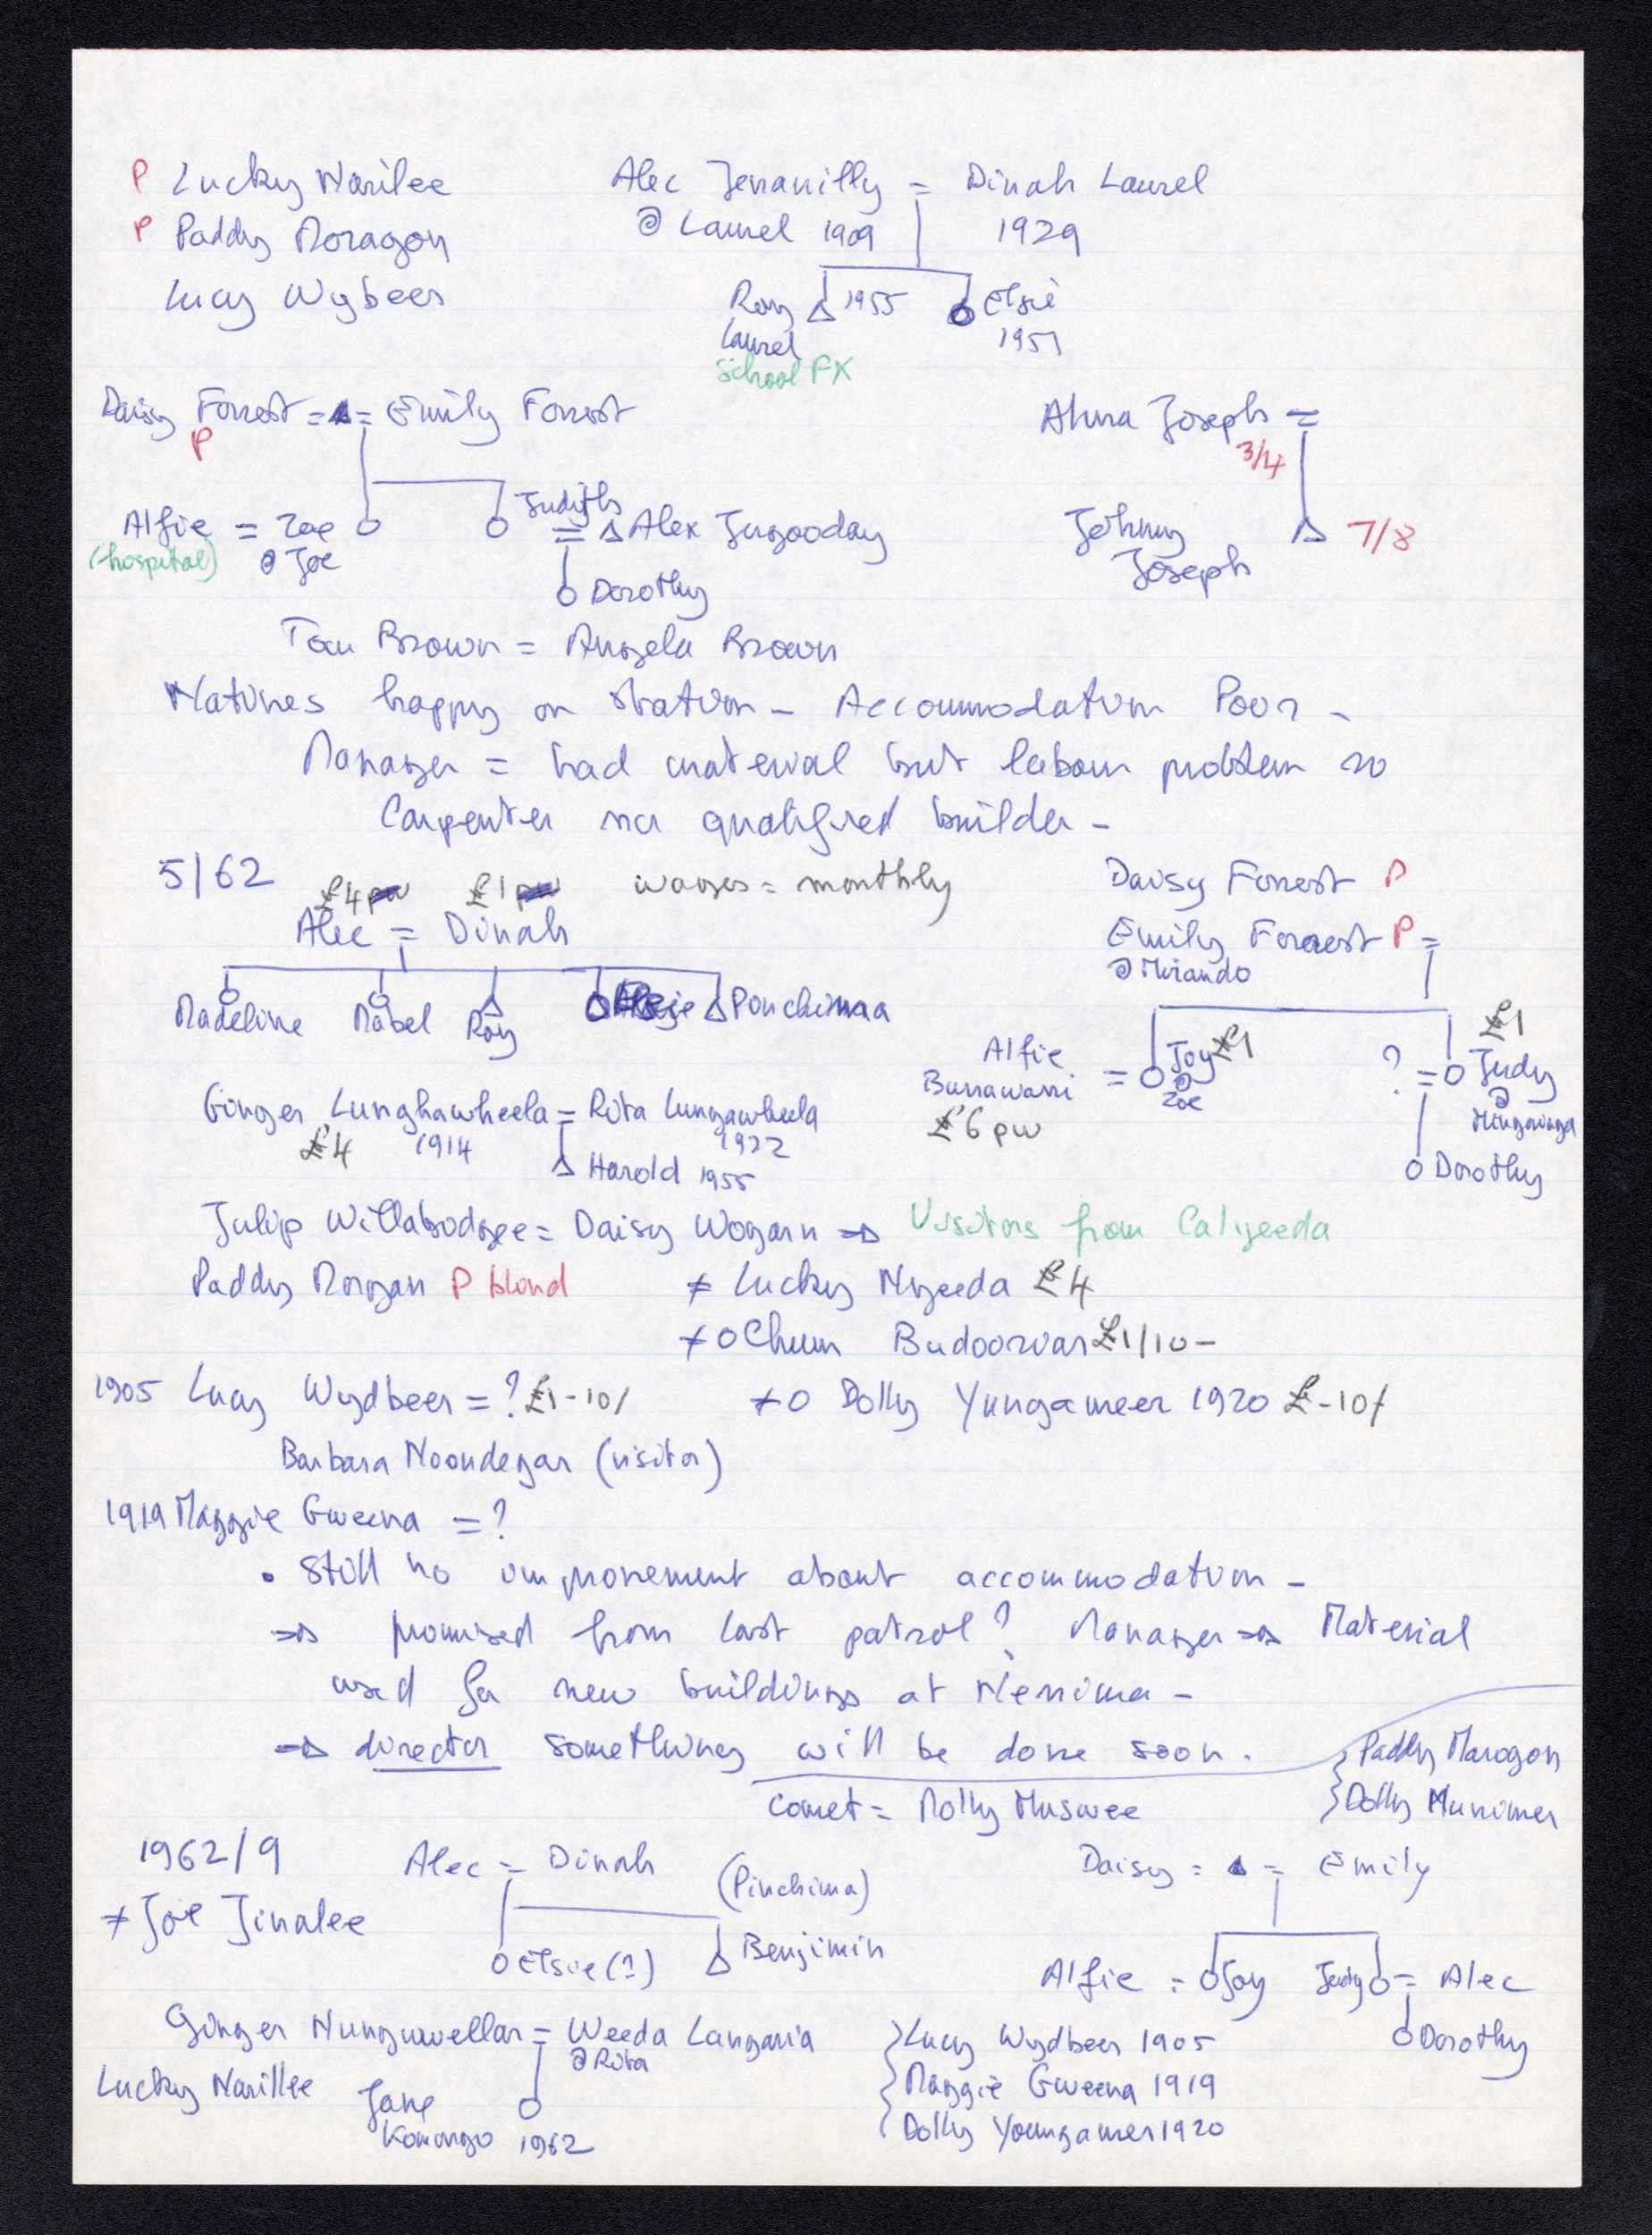 P Lucky Narilee
P Paddy Moragon
Lucy Wybeer
Alec Jenanilly = Dinah Laurel
@ Laurel 1909 1929
Roy 1955 Elsie
Laurel 1957
School FX
Daisy Forrest = = Emily Forrest
P
Alma Joseph =
3/4
Judith
Alfie = Zoe = Alex Jugooday
(hospital) @ Joe
Dorothy
Johnny 7/8
Joseph
Tom Brown = Angela Brown
Natives happy on station - Accommodation Poor -
Manager = had material but labour problem no
Carpenter nor qualified builder -
5/62
£4 £1 wages = monthly
Alec = Dinah
Madeline Mabel Roy Ponchimaa
Daisy Forrest P
Emily Forrest P =
@ Mirando
£1
Alfie = Joy £1 ? = Judy
Burrawarri @ Zoe @
£6 pw
Dorothy
Ginger Lunghawheela = Rita Lungawheela
£4 1914 1922
Harold 1955
Julip Willabodgee = Daisy Wogarn ⇒ Visitors from Calgeeda
Paddy Morgan P blond
≠ Lucky Nyeeda £4
≠ o Chum Budoorvan £1/10-
1905 Lucy Wydbeer = ? £1-10/
≠ o Dolly Yungameer 1920 £-10/
Barbara Noondegar (visitor)
1919 Maggie Gweena = ?
• Still no improvement about accommodation -
⇒ promised from last patrol? Manager ⇒ Material
used for new buildings at Nerrima -
⇒ director something will be done soon.
Paddy Marogon
Dolly Munimer
Comet = Molly Muswee
1962/9
Alec = Dinah
(Pinchima)
≠ Joe Jinalee
Elsie (?) Benjimin
Daisy = = Emily
Alfie = Joy Judy = Alec
Dorothy
Ginger Nunguwellar = Weeda Langaria
@ Rita
Lucky Narillee
Jane
Komongo 1962
Lucy Wydbeer 1905
Maggie Gweena 1919
Dolly Youngamer 1920